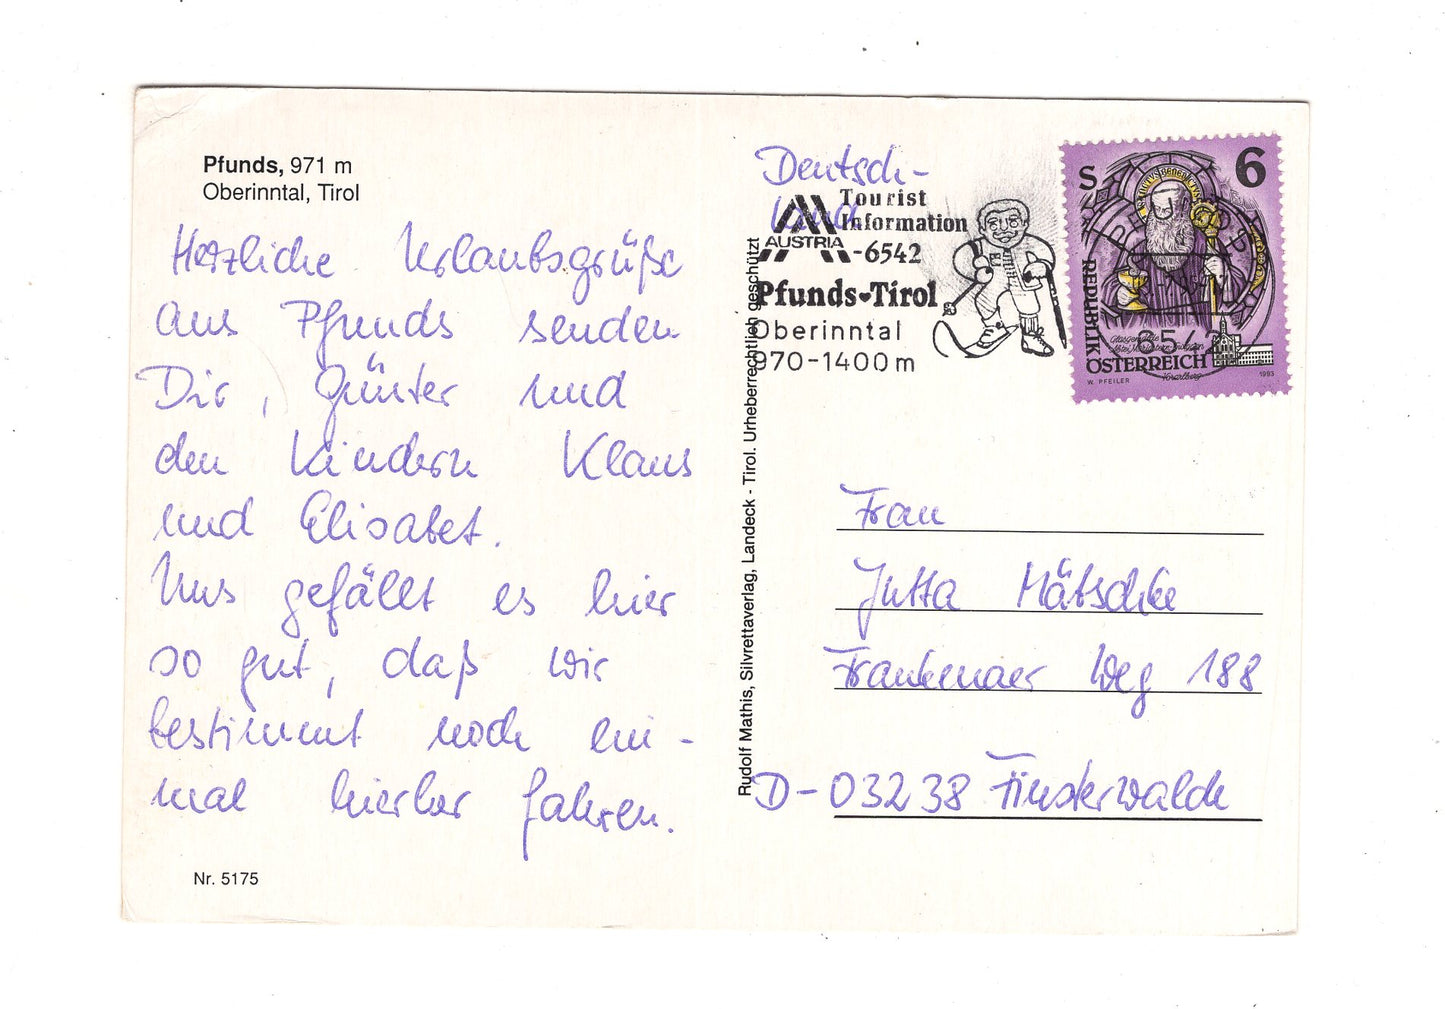 Pfunds, 971 m
Oberinntal, Tirol
Herzliche Urlaubsgrüße
aus Pfunds senden
Dir, Günter und
den Kindern Klaus
und Elisabet.
Uns gefällt es hier
so gut, daß wir
bestimmt noch ein-
mal hierher fahren.
Nr. 5175
Rudolf Mathis, Silvrettaverlag, Landeck - Tirol. Urheberrechtlich geschützt
Deutsch-
land
Tourist
Information
AUSTRIA
-6542
Pfunds♥Tirol
Oberinntal
970-1400m
S 6
SANCTVS BENEDICTVS
REPUBLIK
ÖSTERREICH
W. PFEILER
Vorarlberg
1993
Frau
Jutta Mätschke
Frankenaer Weg 188
D-03238 Finsterwalde